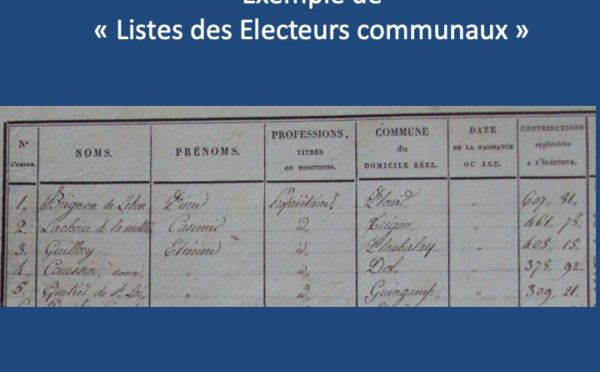 Exemple de
« Listes des Electeurs communaux »
N° D'ORDRE. NOMS. PRÉNOMS. PROFESSIONS, TITRES OU FONCTIONS. COMMUNE DU DOMICILE RÉEL. DATE DE LA NAISSANCE OU AGE. CONTRIBUTIONS applicables A L'ÉLECTEUR.
1. Pierre Propriétaire 607, 81.
2. Lachoüe de la Casimir id Trégon 461, 78,
3. Guillory Etienne id. Ploubalay 405, 15.
4. Couessin, dame id. Dol 378, 92
5. de St id Guingamp 309, 21.